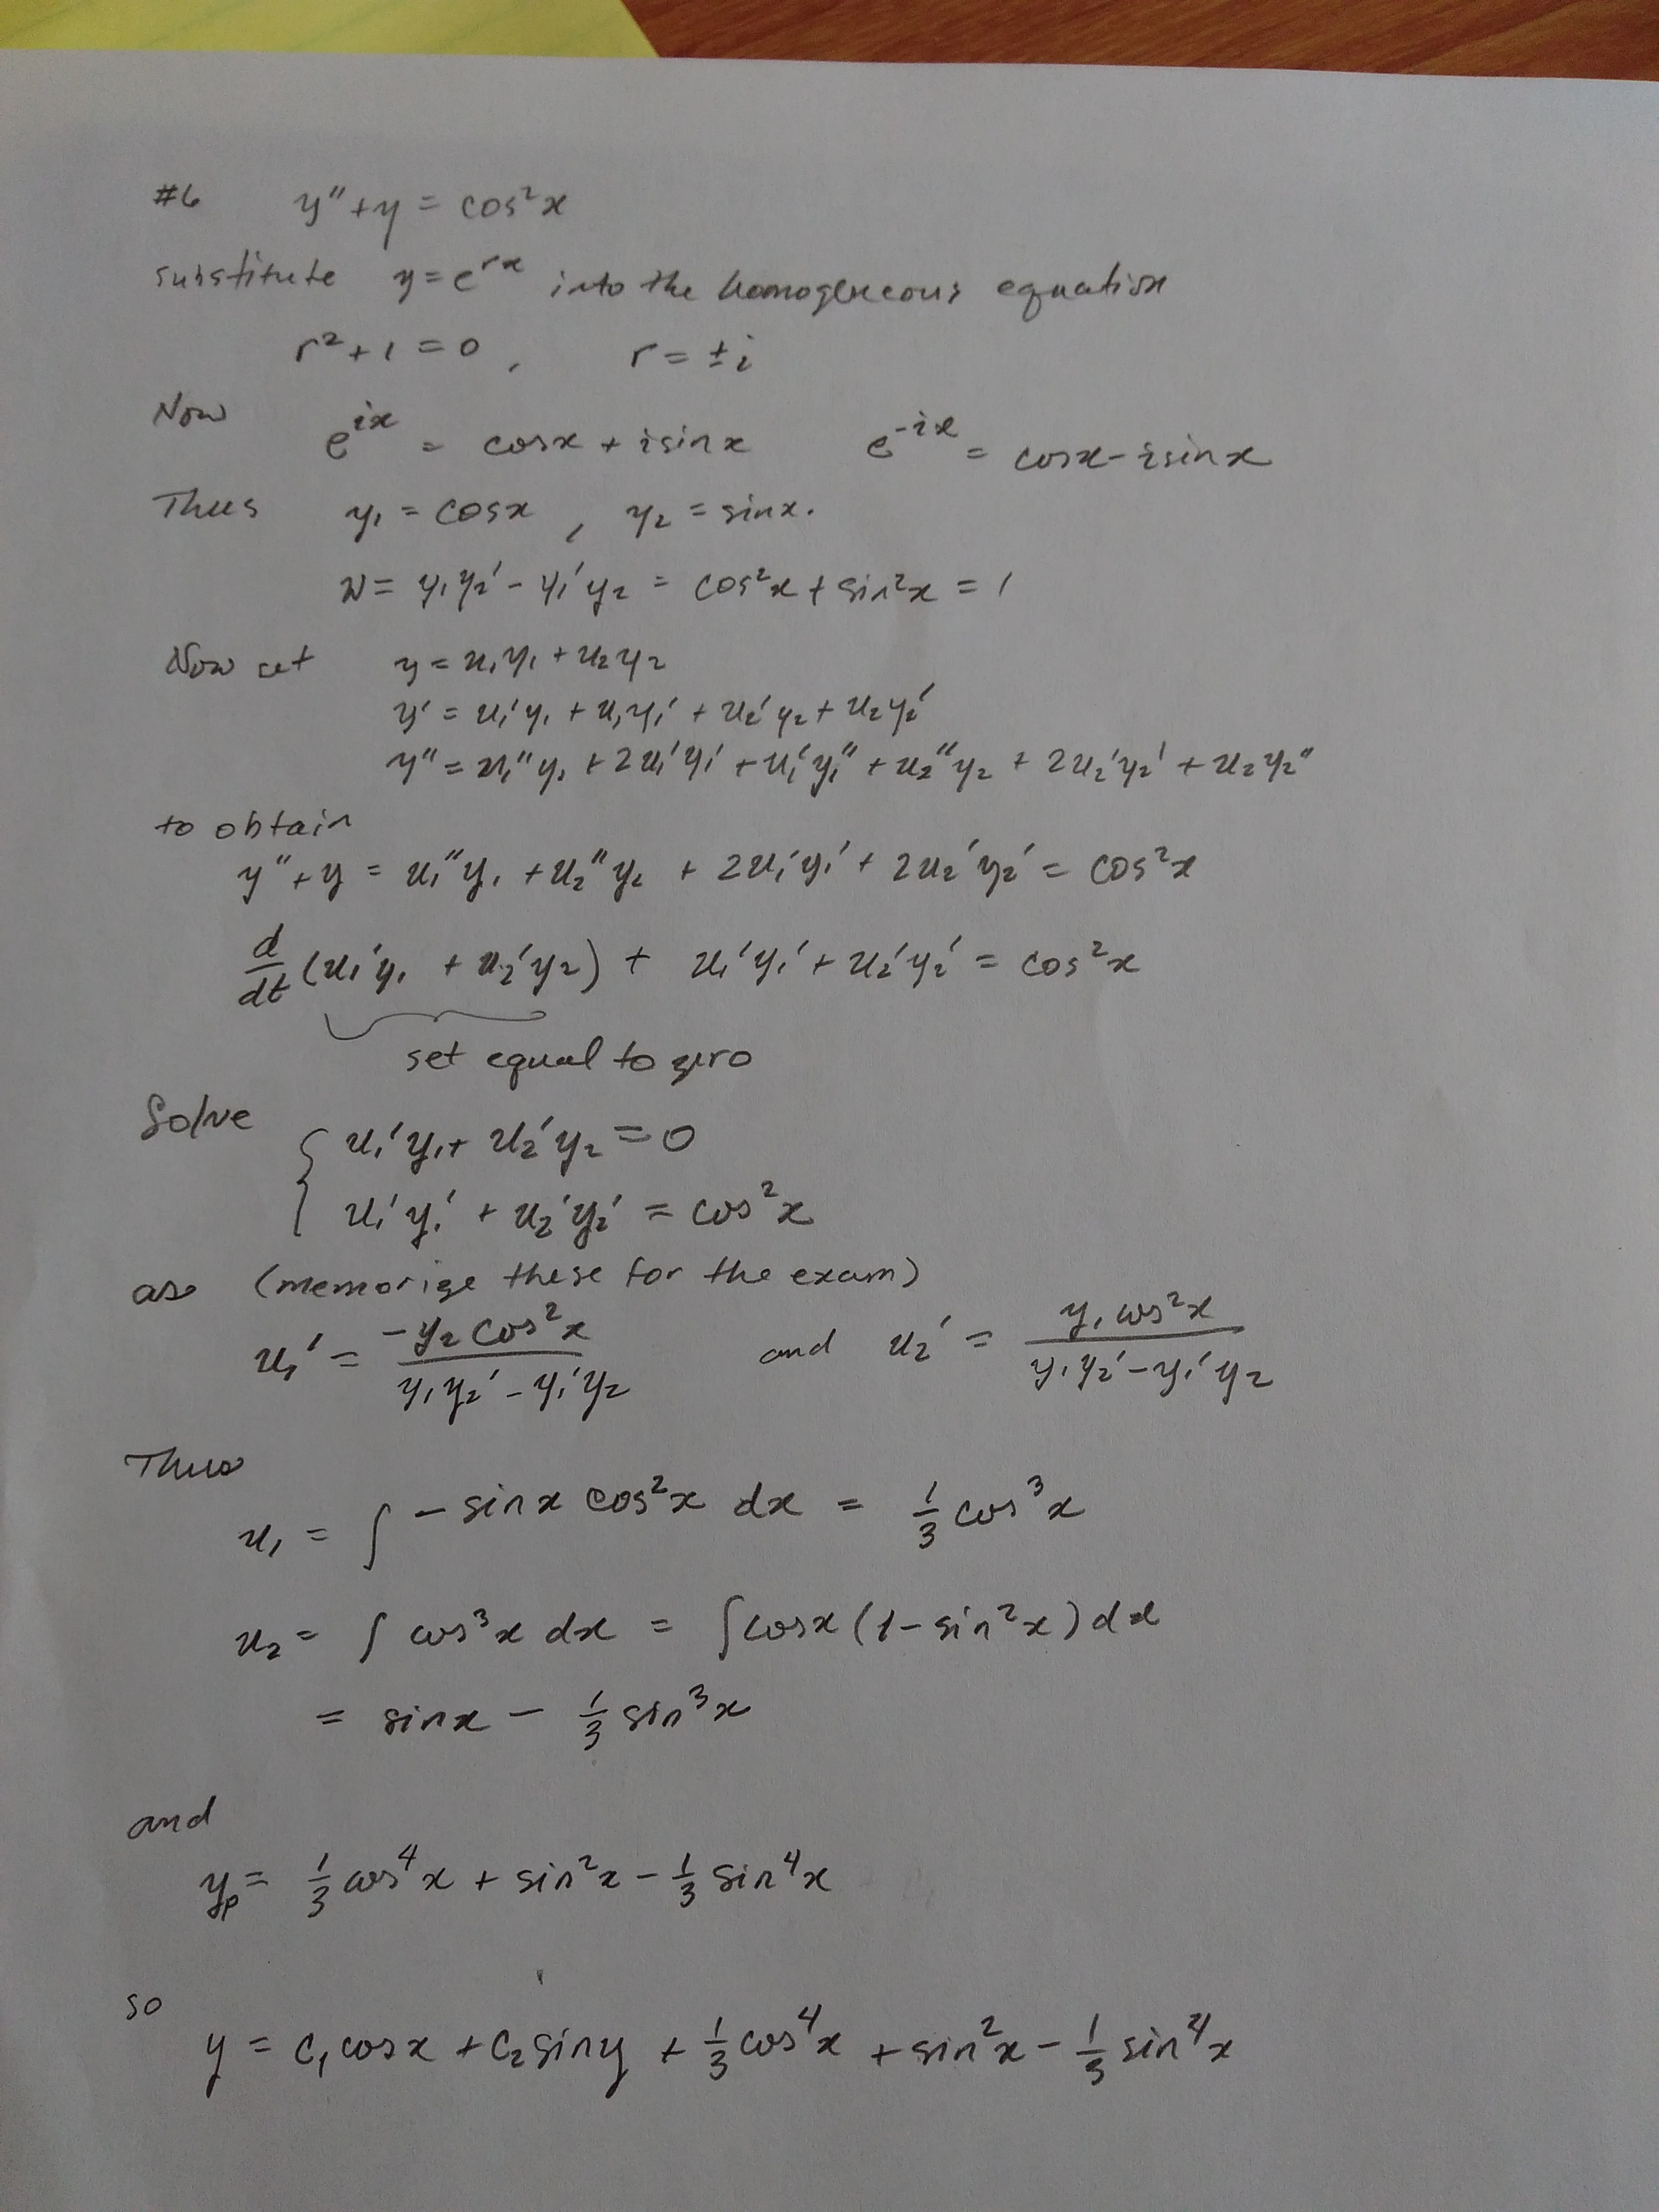 #6 y'' + y = cos²x
substitute y = e^{rx} into the homogeneous equation
r² + 1 = 0, r = ±i
Now e^{ix} = cosx + i sinx e^{-ix} = cosx - i sinx
Thus y₁ = cosx, y₂ = sinx.
W = y₁y₂' - y₁'y₂ = cos²x + sin²x = 1
Now set y = u₁y₁ + u₂y₂
y' = u₁'y₁ + u₁y₁' + u₂'y₂ + u₂y₂'
y'' = u₁''y₁ + 2u₁'y₁' + u₁'y₁'' + u₂''y₂ + 2u₂'y₂' + u₂y₂''
to obtain
y'' + y = u₁''y₁ + u₂''y₂ + 2u₁'y₁' + 2u₂'y₂' = cos²x
d/dt (u₁'y₁ + u₂'y₂) + u₁'y₁' + u₂'y₂' = cos²x
set equal to zero
Solve
{ u₁'y₁ + u₂'y₂ = 0
u₁'y₁' + u₂'y₂' = cos²x
as (memorize these for the exam)
u₁' = -y₂ cos²x / (y₁y₂' - y₁'y₂) and u₂' = y₁ cos²x / (y₁y₂' - y₁'y₂)
Thus
u₁ = ∫ - sinx cos²x dx = 1/3 cos³x
u₂ = ∫ cos³x dx = ∫ cosx (1 - sin²x) dx
= sinx - 1/3 sin³x
and
yₚ = 1/3 cos⁴x + sin²x - 1/3 sin⁴x
so
y = c₁cosx + c₂siny + 1/3 cos⁴x + sin²x - 1/3 sin⁴x